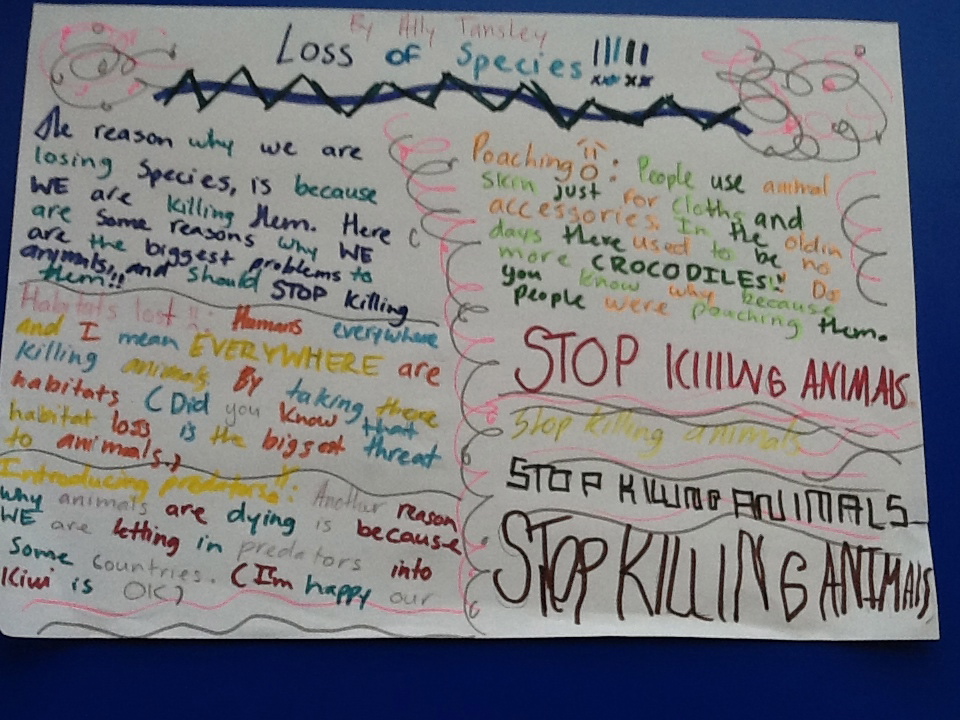 By Ally Tansley
Loss of Species !!!!!
The reason why we are
losing Species, is because
WE are killing them. Here
are some reasons why WE
are the biggest problems to
anymals, and should STOP killing
them!!
Habitats lost!!: Humans everywhere
and I mean EVERYWHERE are
killing animals. By taking there
habitats (Did you know that
habitat loss is the biggest threat
to animals.)
Introducing predators!!: Another reason
why animals are dying is because
WE are letting in predators into
Some countries. (I'm happy our
Kiwi is OK)
Poaching!!: People use animal
skin just for cloths and
accessories. In the oldin
days there used to be no
more CROCODILES!! Do
you know why because
people were pouching them.
STOP KIllING ANIMALS
Stop killing animals
STOP KILLING ANIMALS
STOP KILLING ANIMALS